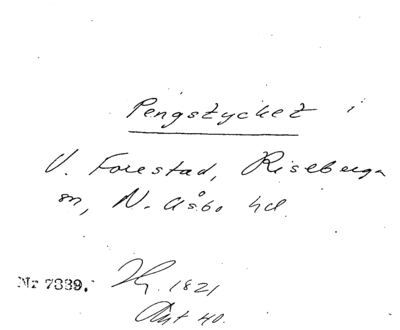 Pengstycket i
V. Forestad, Riseberga
sn, N. Åsbo hd.
Nr 7889. Hy. 1821
Akt 40.